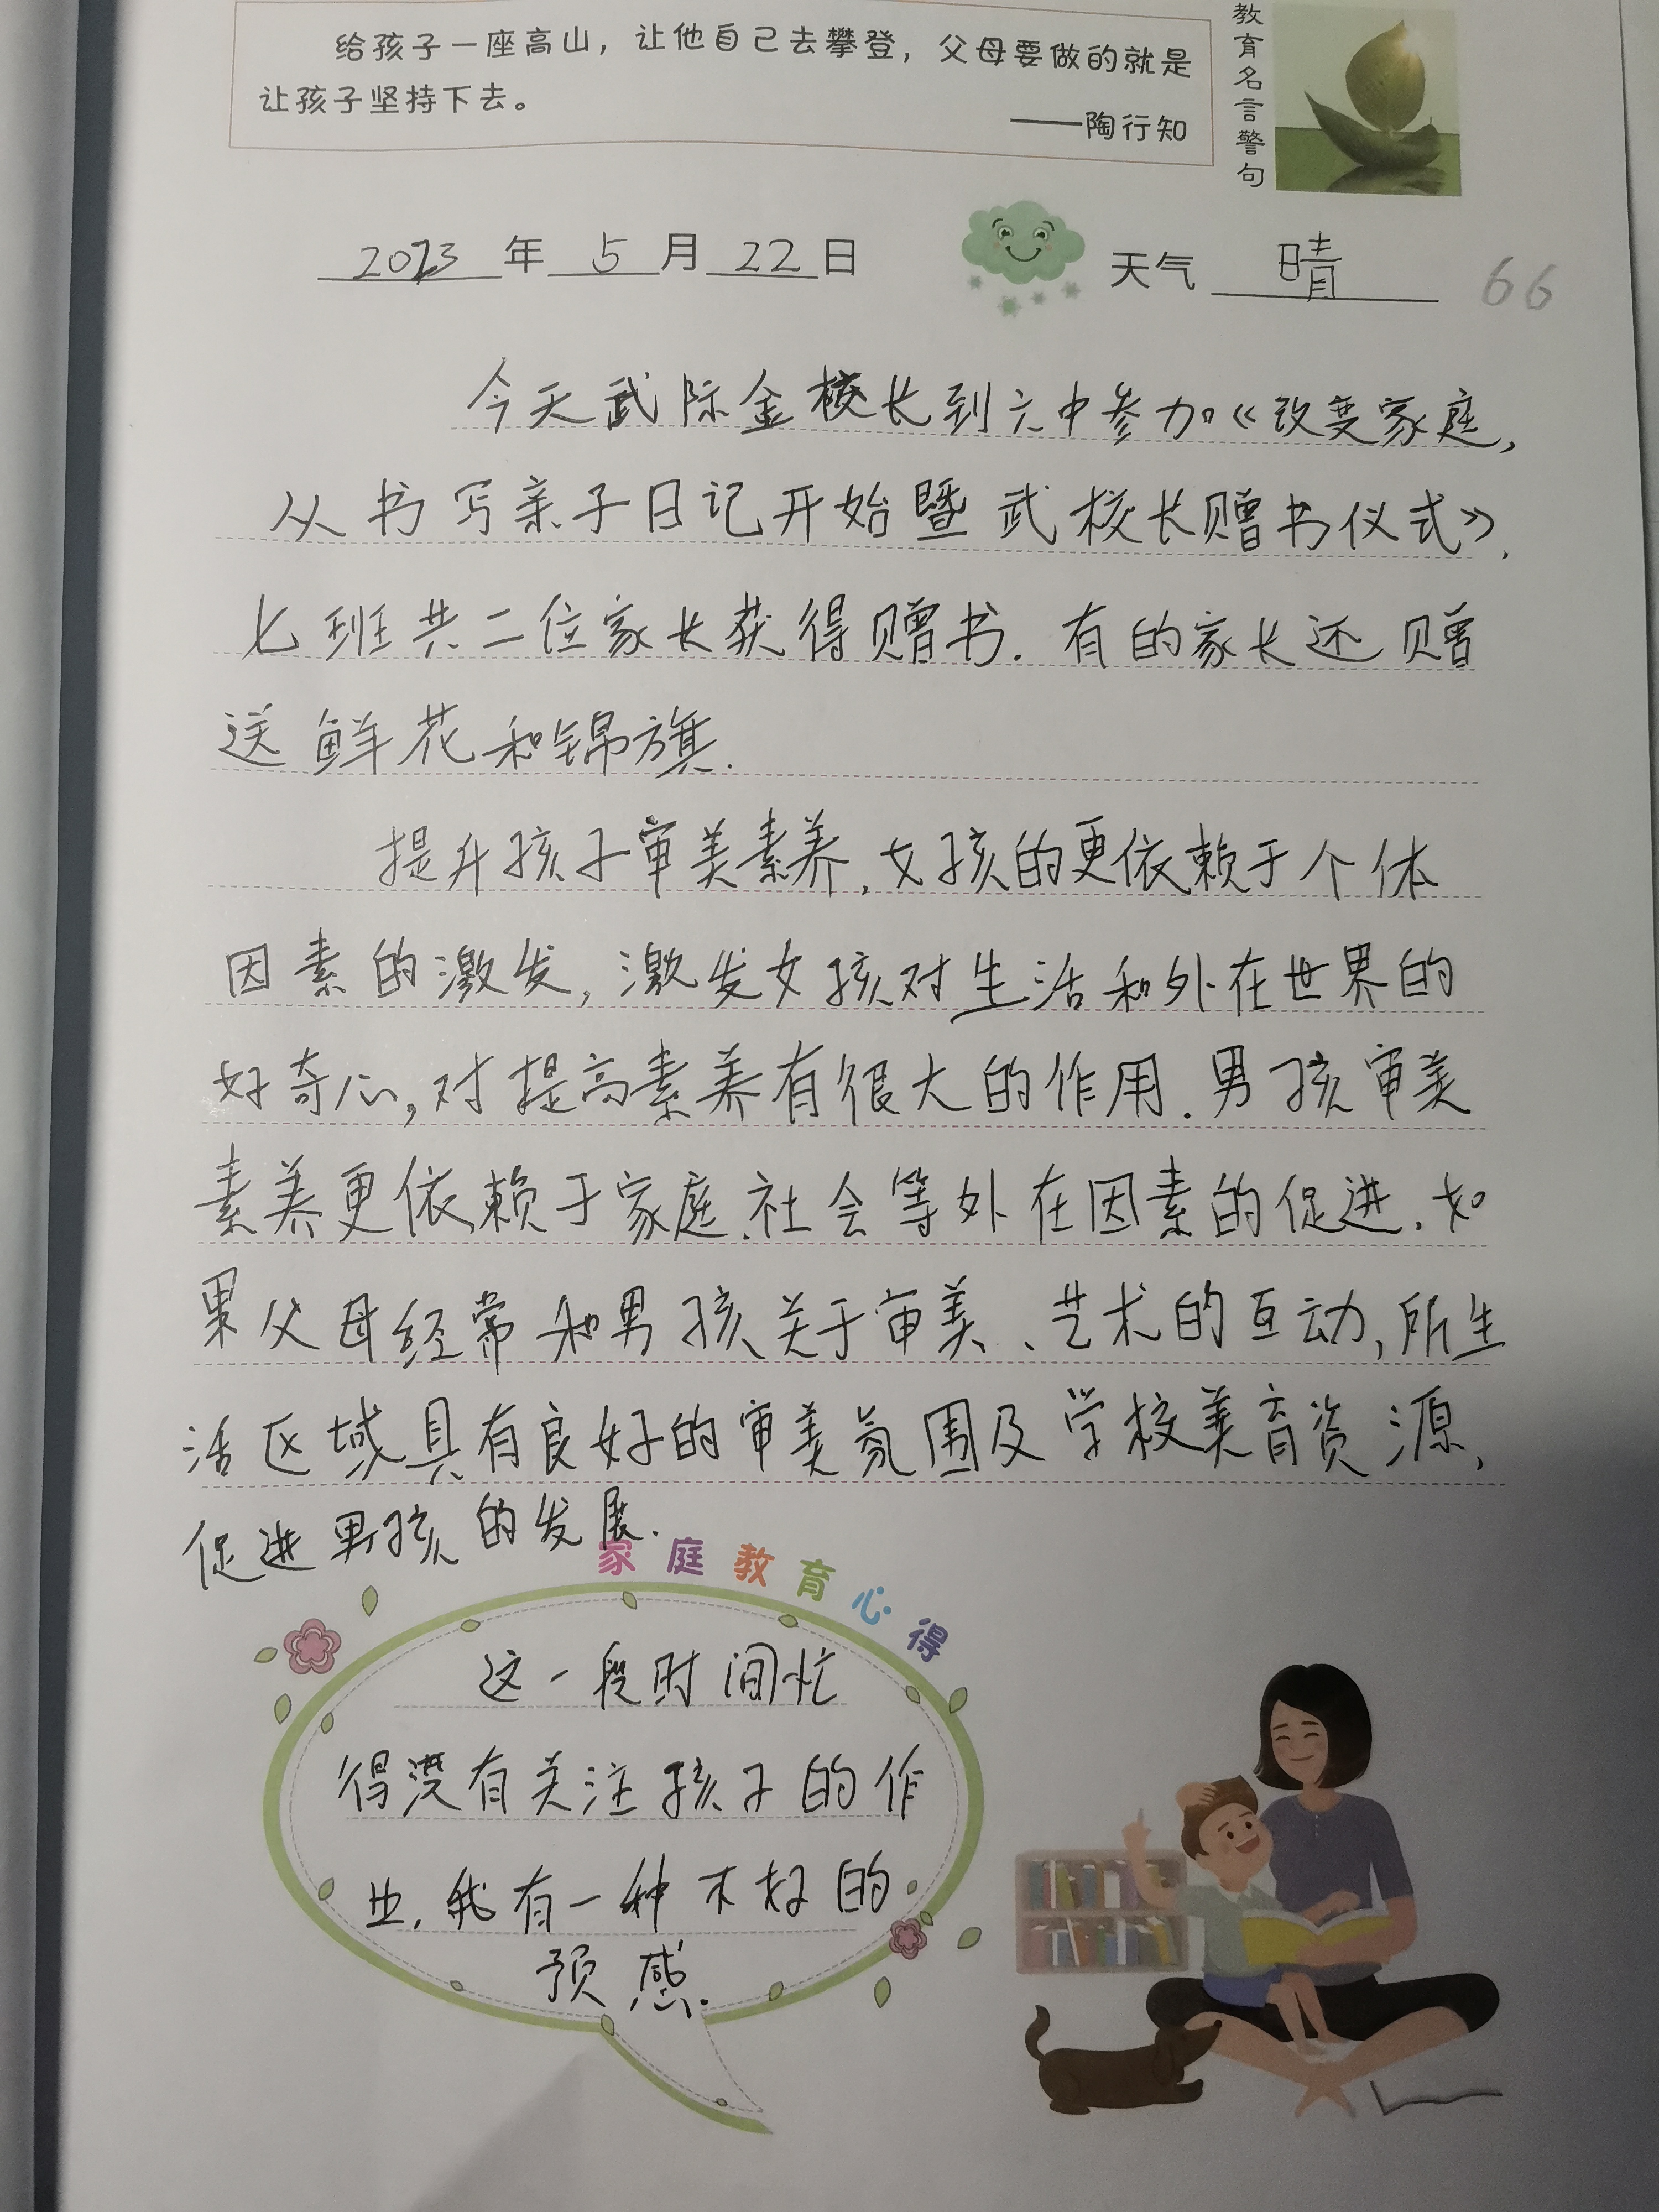 给孩子一座高山，让他自己去攀登，父母要做的就是
让孩子坚持下去。
——陶行知
教育名言警句
2023年5月22日
天气 晴
66
今天武际金校长到六中参加《改变家庭,
从书写亲子日记开始暨武校长赠书仪式》.
七班共二位家长获得赠书.有的家长还赠
送鲜花和锦旗.
提升孩子审美素养,女孩的更依赖于个体
因素的激发,激发女孩对生活和外在世界的
好奇心,对提高素养有很大的作用.男孩审美
素养更依赖于家庭.社会等外在因素的促进.如
果父母经常和男孩关于审美、艺术的互动,所生
活区域具有良好的审美氛围及学校美育资源,
促进男孩的发展.
家庭教育心得
这一段时间忙
得没有关注孩子的作
业,我有一种不好的
预感.